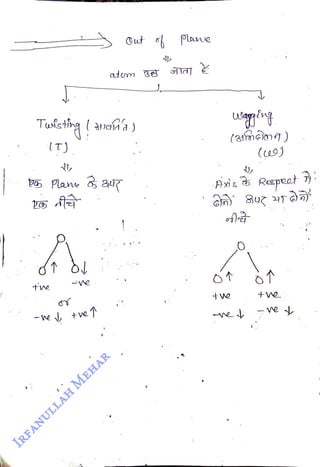 Out of Plane
atom उठ जाता है
Twisting (आवर्तित)
(τ)
एक Plane के ऊपर
एक नीचे
+ve -ve
or
-ve ↓ +ve ↑
Wagging
(ω)
Axis के Respect में
दोनों ऊपर या दोनों
नीचे
+ve +ve
-ve ↓ -ve ↓
IRFANULLAH MEHAR